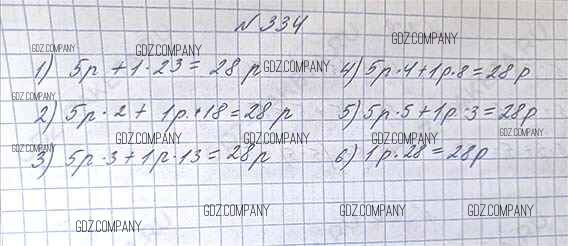 № 334
GDZ.COMPANY GDZ.COMPANY GDZ.COMPANY
1) 5р + 1 · 23 = 28 р GDZ.COMPANY 4) 5р · 4 + 1р · 8 = 28 р
GDZ.COMPANY
2) 5р · 2 + 1р · 18 = 28 р 5) 5р · 5 + 1р · 3 = 28р
GDZ.COMPANY GDZ.COMPANY GDZ.COMPANY GDZ.COMPANY GDZ.COMPANY
3) 5р · 3 + 1р · 13 = 28р 6) 1р · 28 = 28р
GDZ.COMPANY GDZ.COMPANY GDZ.COMPANY GDZ.COMPANY